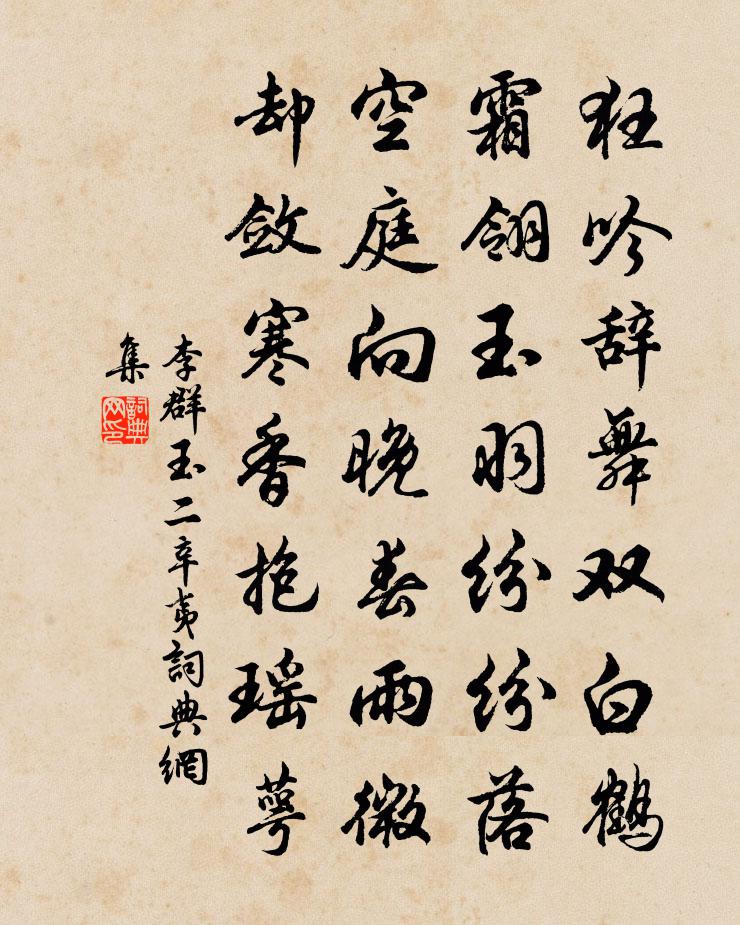 狂吟辞舞双白鹤
霜翎玉羽纷纷落
空庭向晚春雨微
却敛寒香抱瑶萼
李群玉二辛夷詞典網
集
詞典
网印